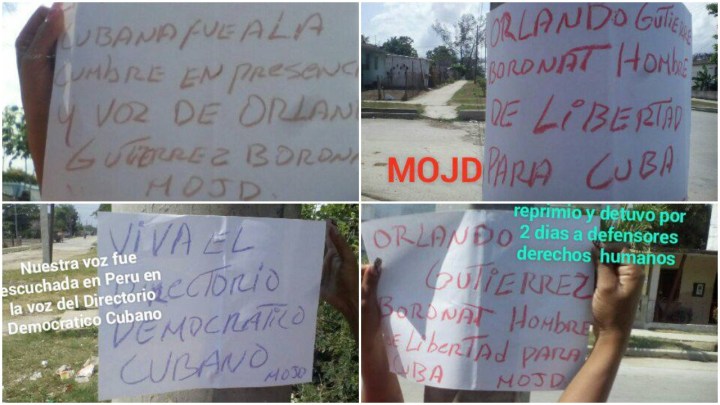 CUBANA FUE A LA
CUMBRE EN PRESENC
Y VOZ DE ORLAN
GUTIERREZ BORON
MOJD.
ORLANDO GUTIERRE
BORONAT HOMBRE
DE LIBERTAD
PARA CUBA
MOJD
VIVA EL
DIRECTORIO
DEMOCRATICO
CUBANO MOJD
Nuestra voz fue
escuchada en Peru en
la voz del Directorio
Democratico Cubano
reprimio y detuvo por
2 dias a defensores
derechos humanos
ORLANDO
GUTIERREZ
BORONAT HOMBRE
DE LIBERTAD PARA
CUBA MOJD